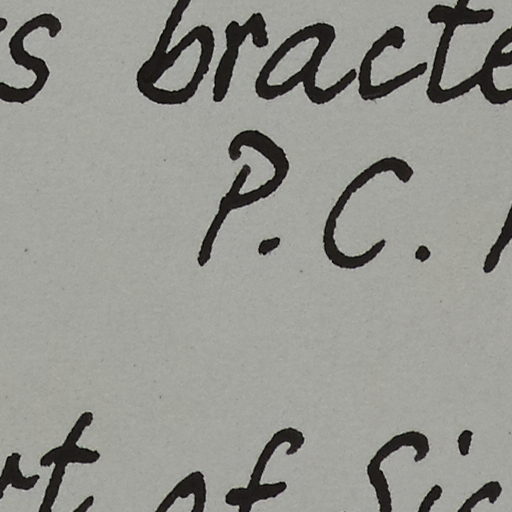 s bracte
P. C.
rt of Sic